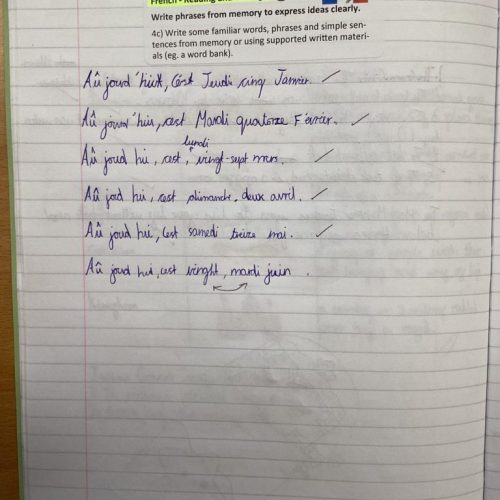 French - Reading and
Write phrases from memory to express ideas clearly.
4c) Write some familiar words, phrases and simple sen-
tences from memory or using supported written materi-
als (eg. a word bank).
Aû jourd'huit, C'est Jeudi cinq Janvier.
Aû jourd'hui, cest Mardi quatorze Février.
lundi
Aû joud hui, cest, vingt-sept mars.
Aû jod hi, cest dimanche, deux avril.
Aû joud hui, C'est samedi treize mai.
Aû joud hui, cest vinght, mardi juin.